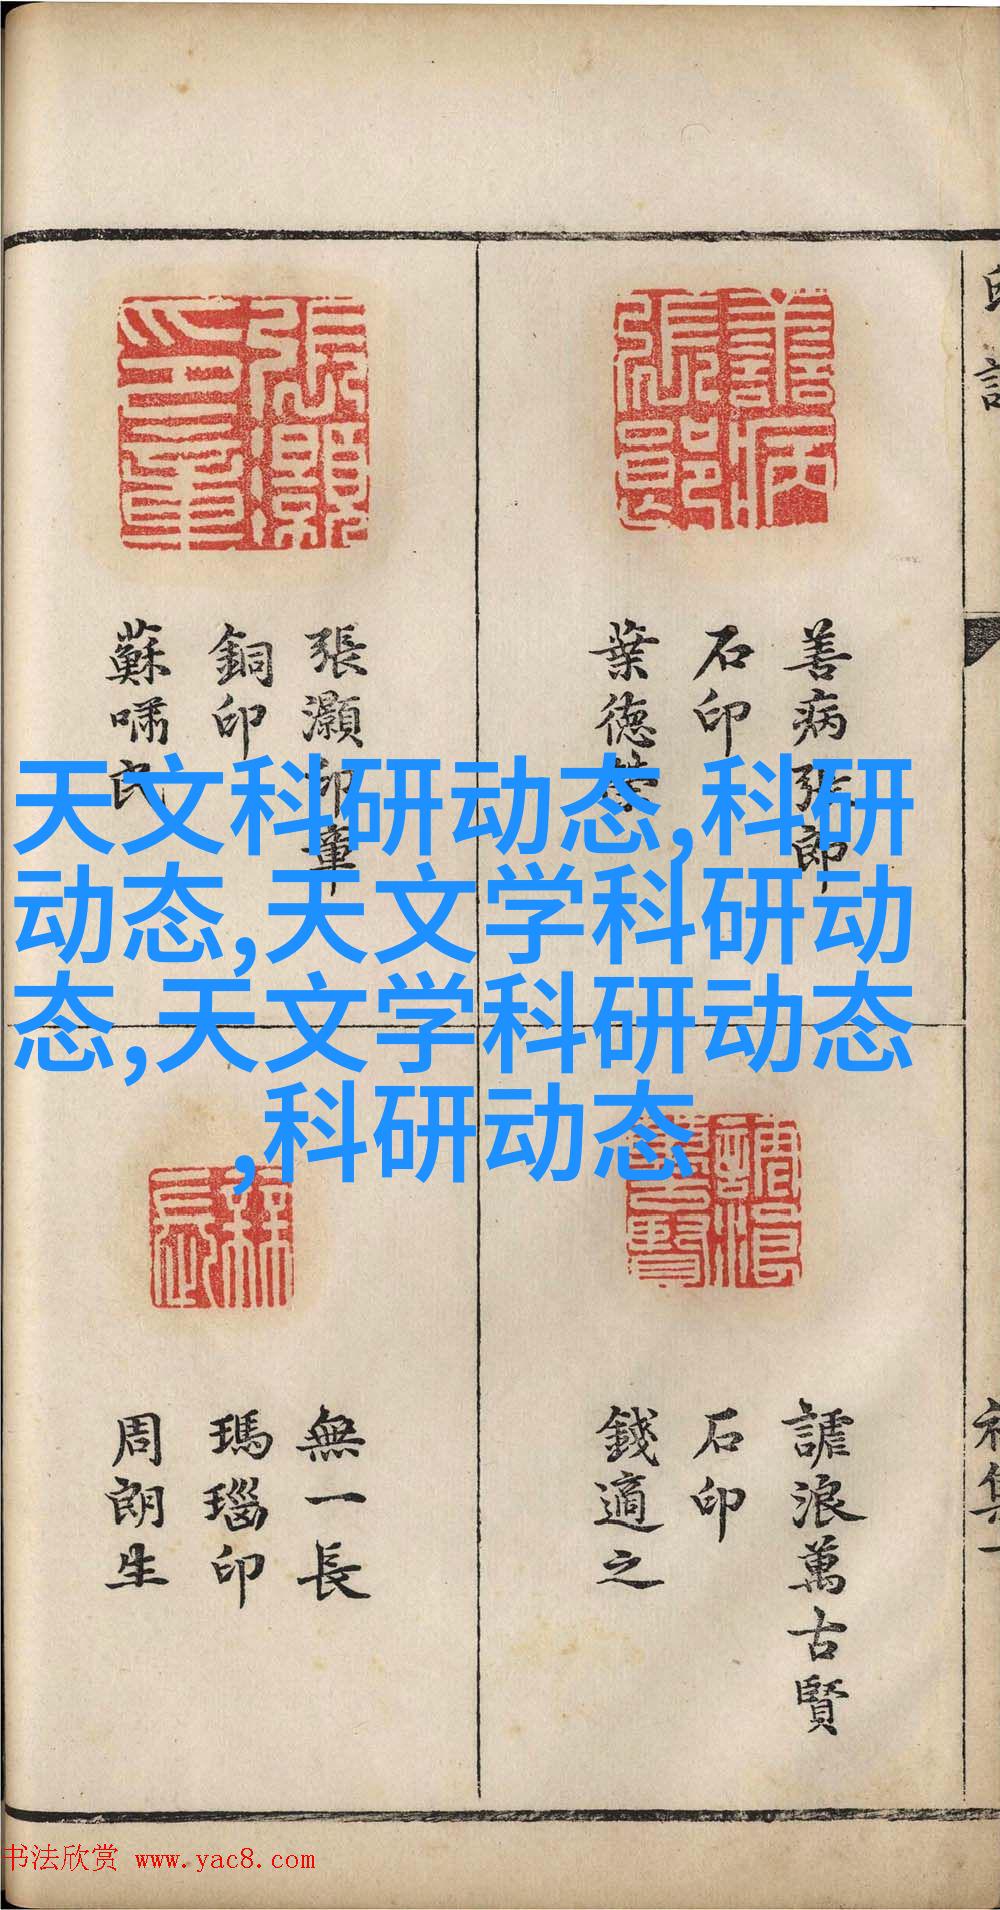 善病張郎
石印
葉德榮
張灝印章
銅印
蘇嘯民
謔浪萬古賢
石印
錢適之
無一長
瑪瑙印
周朗生
初集一
天文科研动态,科研
动态,天文学科研动
态,天文学科研动态
,科研动态
书法欣赏 www.yac8.com